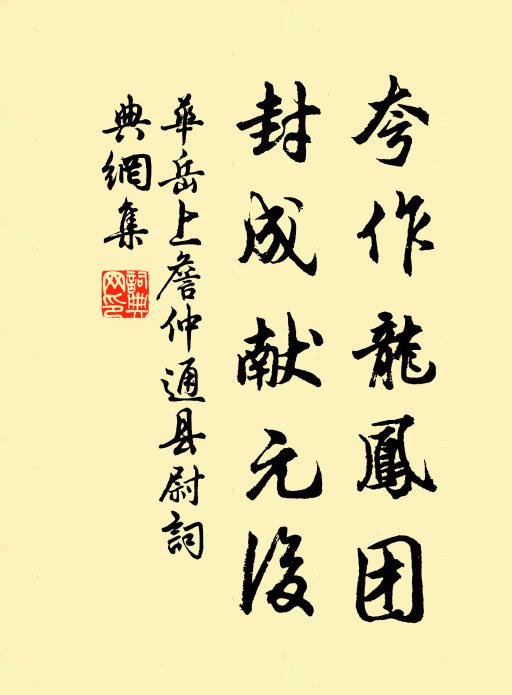 夸作龍鳳团
封成献元後
華岳上詹仲通县尉詞
典網集
詞典網印